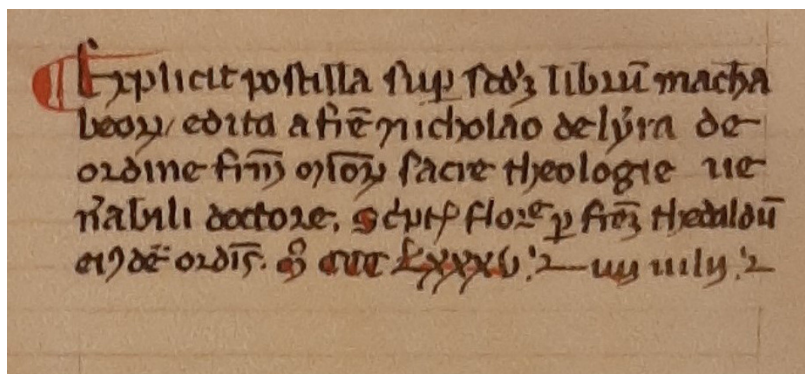 Explicit postilla sup scdʒ librū macha
beoꝝ / edita a frē nicholao de lyra de
ordine frm̄ mīoꝝ sacre theologie ue
nabili doctore. scͥpt flore p frēʒ thedaldū
eiꝰdē ordīs. Mͦ CCC LXXXV.